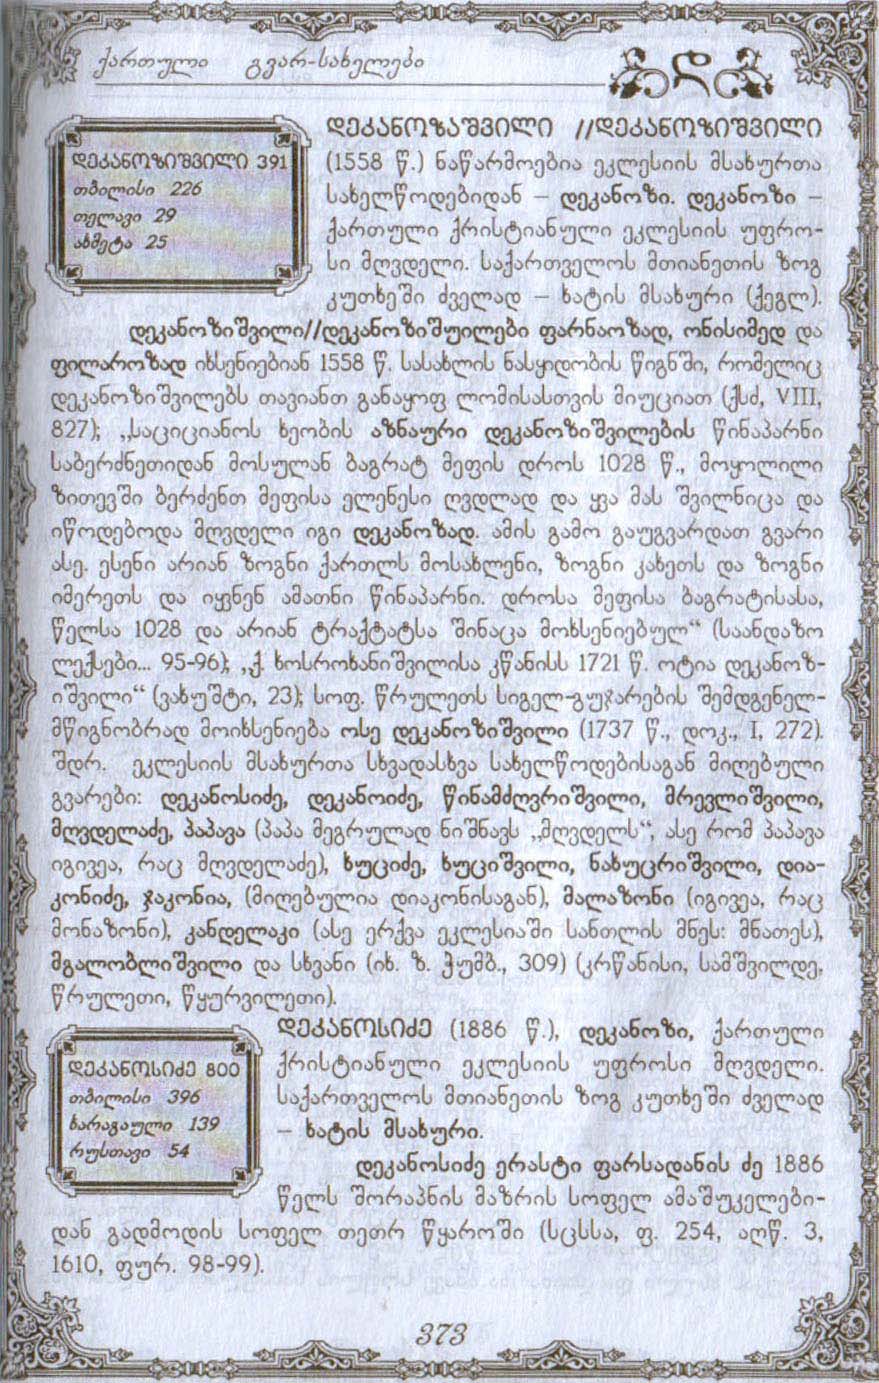 ქართული გვარ-სახელები
დ
დეკანოზიშვილი 391
თბილისი 226
თელავი 29
ახმეტა 25
დეკანოზაშვილი //დეკანოზიშვილი
(1558 წ.) ნაწარმოებია ეკლესიის მსახურთა
სახელწოდებიდან – დეკანოზი. დეკანოზი –
ქართული ქრისტიანული ეკლესიის უფრო-
სი მღვდელი. საქართველოს მთიანეთის ზოგ
კუთხეში ძველად – ხატის მსახური (ქეგლ).
დეკანოზიშვილი//დეკანოზიშუილები ფარნაოზად, ონისიმედ და
ფილაროზად იხსენიებიან 1558 წ. სასახლის ნასყიდობის წიგნში, რომელიც
დეკანოზიშვილებს თავიანთ განაყოფ ლომისასთვის მიუციათ (ქსძ, VIII,
827); „საციციანოს ხეობის აზნაური დეკანოზიშვილების წინაპარნი
საბერძნეთიდან მოსულან ბაგრატ მეფის დროს 1028 წ., მოყოლილი
ზითევში ბერძენთ მეფისა ელენესი ღვდლად და ყვა მას შვილნიცა და
იწოდებოდა მღვდელი იგი დეკანოზად. ამის გამო გაუგვარდათ გვარი
ასე. ესენი არიან ზოგნი ქართლს მოსახლენი, ზოგნი კახეთს და ზოგნი
იმერეთს და იყვნენ ამათნი წინაპარნი. დროსა მეფისა ბაგრატისასა,
წელსა 1028 და არიან ტრაქტატსა შინაცა მოხსენიებულ“ (საანდაზო
ლექსები... 95-96); „ქ. ხოსროხანიშვილისა კწანისს 1721 წ. ოტია დეკანოზ-
იშვილი“ (ვახუშტი, 23); სოფ. წრულეთს სიგელ-გუჯარების შემდგენელ-
მწიგნობრად მოიხსენიება ოსე დეკანოზიშვილი (1737 წ., დოკ., I, 272).
შდრ. ეკლესიის მსახურთა სხვადასხვა სახელწოდებისაგან მიღებული
გვარები: დეკანოსიძე, დეკანოიძე, წინამძღვრიშვილი, მრევლიშვილი,
მღვდელაძე, პაპავა (პაპა მეგრულად ნიშნავს „მღვდელს“, ასე რომ პაპავა
იგივეა, რაც მღვდელაძე), ხუციძე, ხუციშვილი, ნახუცრიშვილი, დია-
კონიძე, ჯაკონია, (მიღებულია დიაკონისაგან), მალაზონი (იგივეა, რაც
მონაზონი), კანდელაკი (ასე ერქვა ეკლესიაში სანთლის მნეს: მნათეს),
მგალობლიშვილი და სხვანი (იხ. ზ. ჭუმბ., 309) (კრწანისი, სამშვილდე,
წრულეთი, წყურვილეთი).
დეკანოსიძე 800
თბილისი 396
ხარაგაული 139
რუსთავი 54
დეკანოსიძე (1886 წ.), დეკანოზი, ქართული
ქრისტიანული ეკლესიის უფროსი მღვდელი.
საქართველოს მთიანეთის ზოგ კუთხეში ძველად
– ხატის მსახური.
დეკანოსიძე ერასტი ფარსადანის ძე 1886
წელს შორაპნის მაზრის სოფელ ამაშუკელები-
დან გადმოდის სოფელ თეთრ წყაროში (სცსსა, ფ. 254, აღწ. 3,
1610, ფურ. 98-99).
373